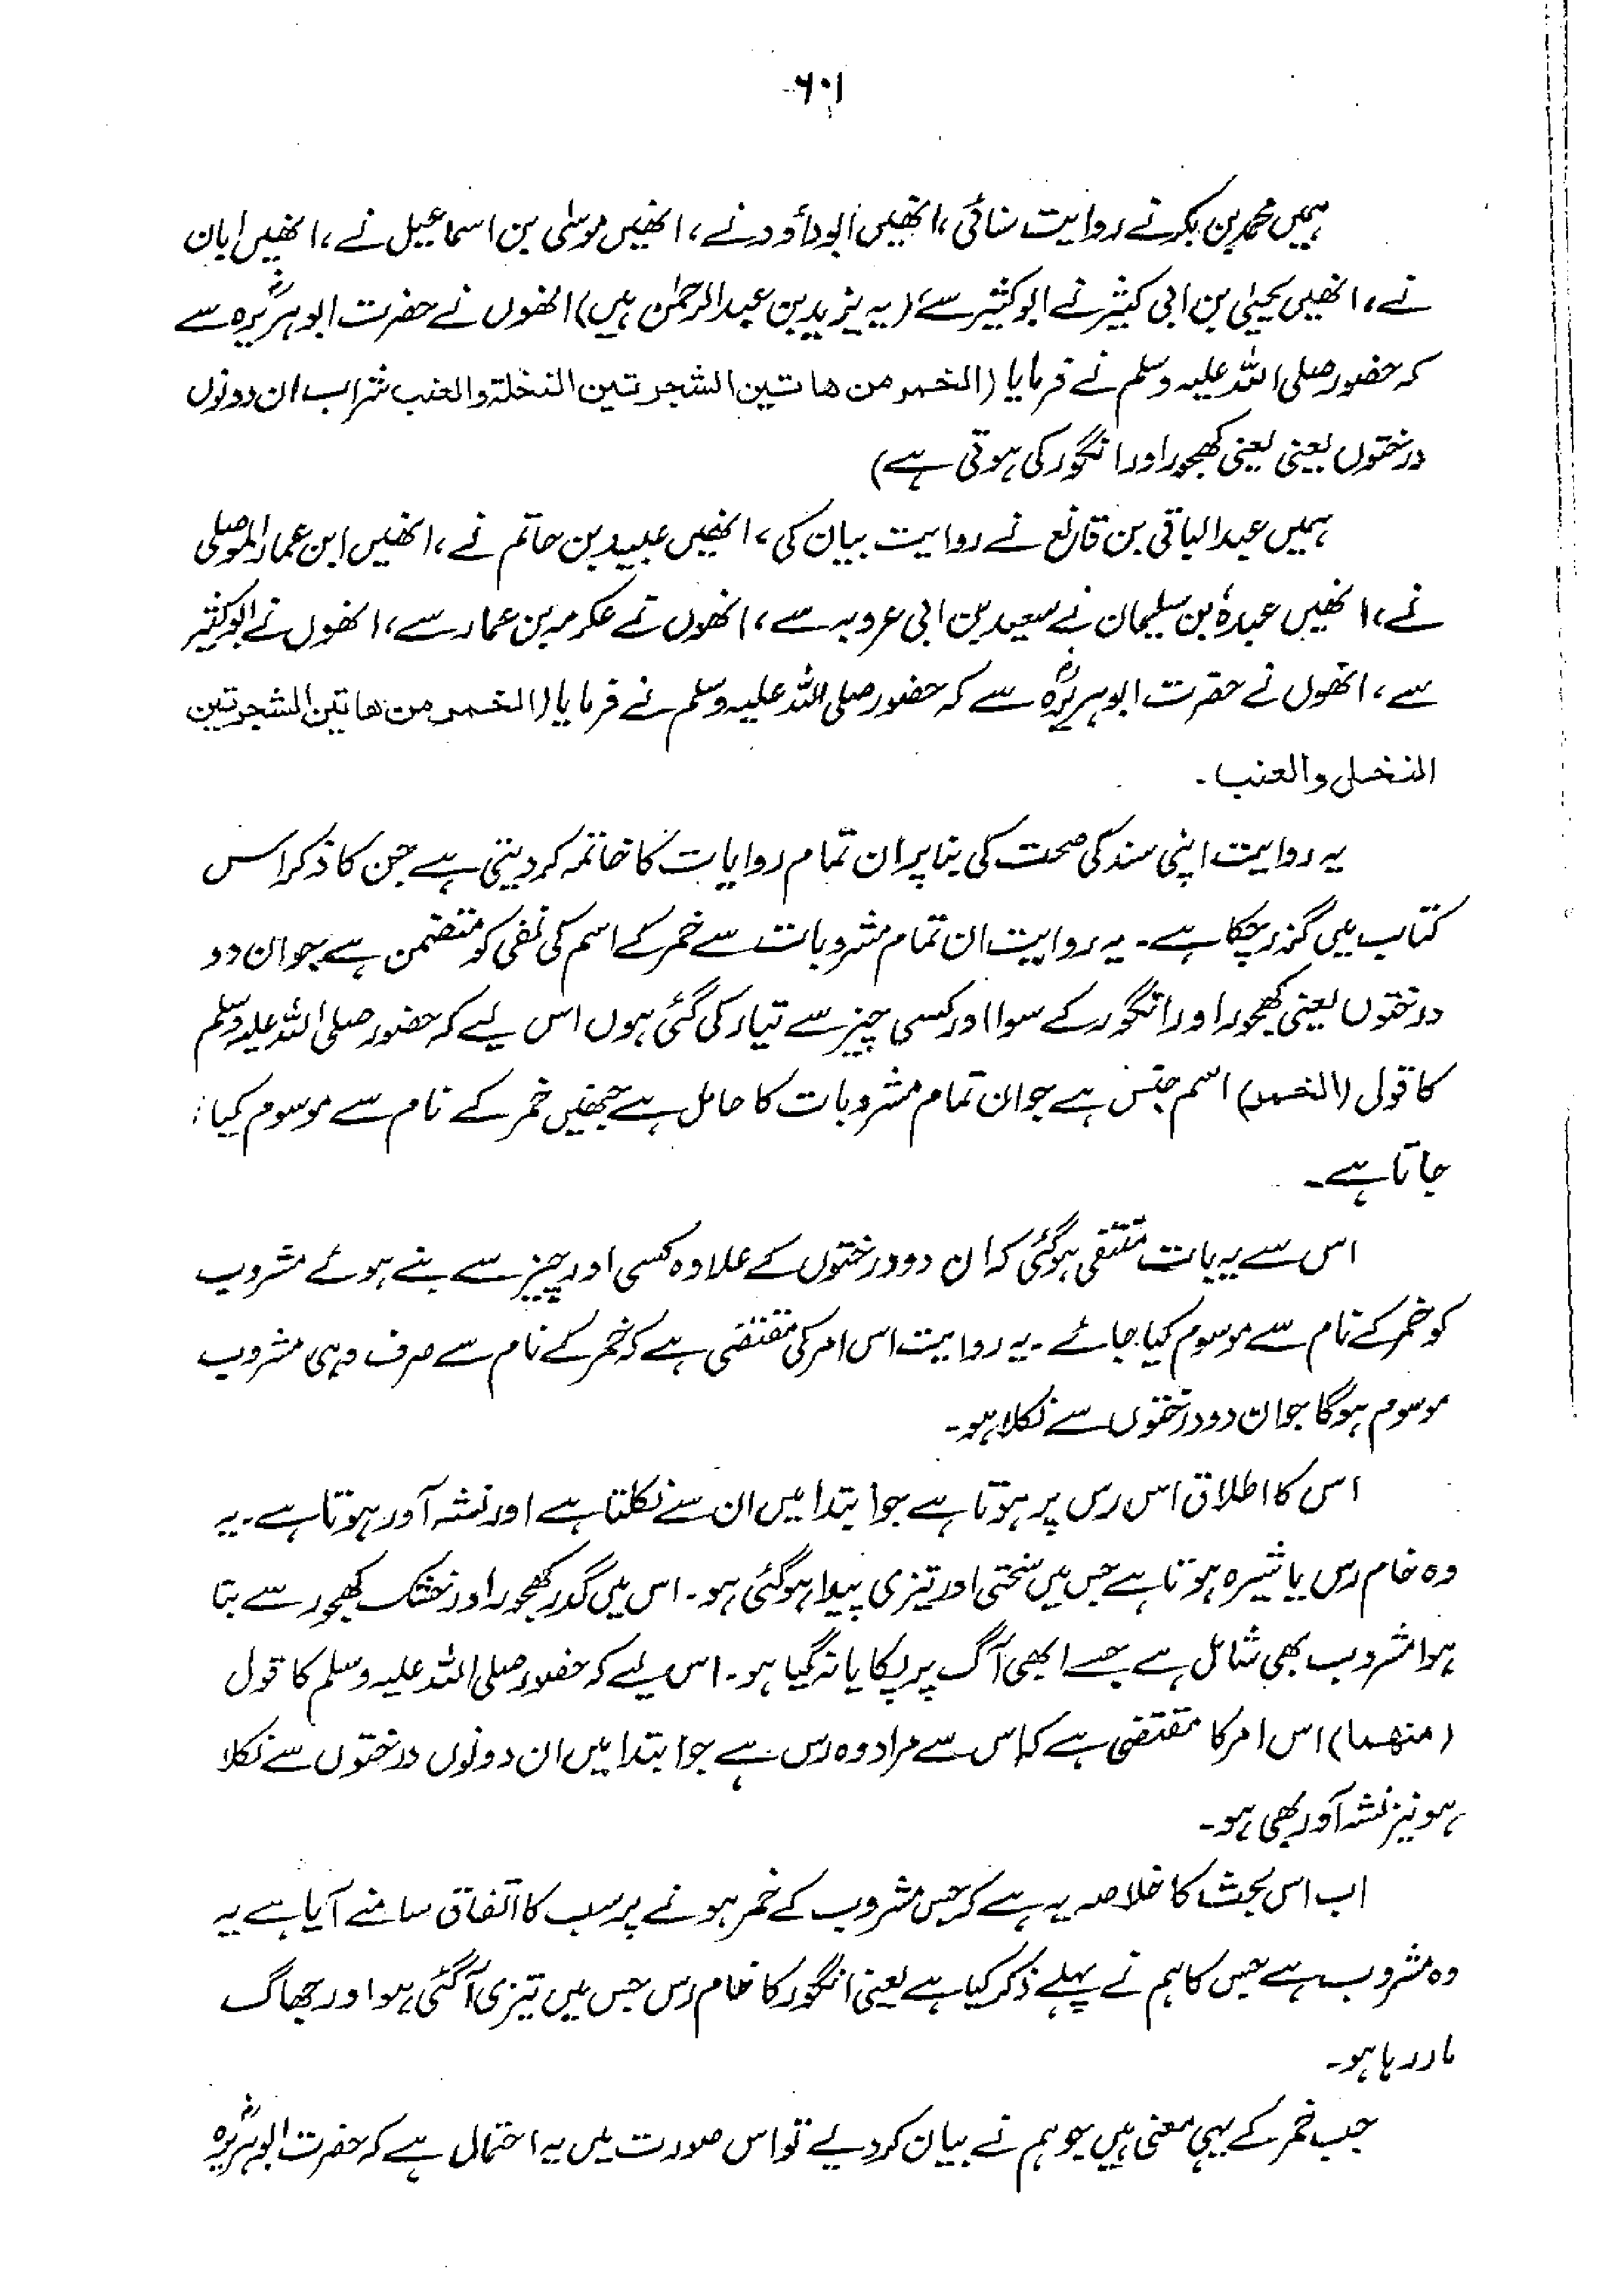 ۶۰۱
ہمیں محمد بن بکر نے روایت سنائی، انھیں ابوداؤد نے، انھیں موسیٰ بن اسماعیل نے، انھیں ابان
نے، انھیں یحییٰ بن ابی کثیر نے ابوکثیر سے (یہ یزید بن عبدالرحمٰن ہیں) انھوں نے حضرت ابوہریرہؓ سے
کہ حضور صلی اللہ علیہ وسلم نے فرمایا (الخمر من هاتين الشجرتين النخلة والعنب شراب ان دونوں
درختوں یعنی یعنی کھجور اور انگور کی ہوتی ہے)
ہمیں عبدالباقی بن قانع نے روایت بیان کی، انھیں عبید بن حاتم نے، انھیں ابن عمار الموصلی
نے، انھیں عبدہ بن سلیمان نے سعید بن ابی عروبہ سے، انھوں نے عکرمہ بن عمار سے، انھوں نے ابوکثیر
سے، انھوں نے حضرت ابوہریرہؓ سے کہ حضور صلی اللہ علیہ وسلم نے فرمایا (الخمر من هاتين الشجرتين
النخل والعنب۔
یہ روایت اپنی سند کی صحت کی بنا پر ان تمام روایات کا خاتمہ کر دیتی ہے جن کا ذکر اس
کتاب میں گزر چکا ہے۔ یہ روایت ان تمام مشروبات سے خمر کے اسم کی نفی کو متضمن ہے جو ان دو
درختوں یعنی کھجور اور انگور کے سوا اور کسی چیز سے تیار کی گئی ہوں اس لیے کہ حضور صلی اللہ علیہ وسلم
کا قول (الخمر) اسم جنس ہے جو ان تمام مشروبات کا حامل ہے جنھیں خمر کے نام سے موسوم کیا
جاتا ہے۔
اس سے یہ بات منتفی ہو گئی کہ ان دو درختوں کے علاوہ کسی اور چیز سے بنے ہوئے مشروب
کو خمر کے نام سے موسوم کیا جائے۔ یہ روایت اس امر کی مقتضی ہے کہ خمر کے نام سے صرف وہی مشروب
موسوم ہوگا جو ان دو درختوں سے نکلا ہو۔
اس کا اطلاق اس رس پر ہوتا ہے جو ابتدا میں ان سے نکلتا ہے اور نشہ آور ہوتا ہے۔ یہ
وہ خام رس یا شیرہ ہوتا ہے جس میں سختی اور تیزی پیدا ہو گئی ہو۔ اس میں گدر کھجور اور خشک کھجور سے بنا
ہوا مشروب بھی شامل ہے جسے ابھی آگ پر پکایا نہ گیا ہو۔ اس لیے کہ حضور صلی اللہ علیہ وسلم کا قول
(منهما) اس امر کا مقتضی ہے کہ اس سے مراد وہ رس ہے جو ابتدا میں ان دونوں درختوں سے نکلا
ہو نیز نشہ آور بھی ہو۔
اب اس بحث کا خلاصہ یہ ہے کہ جس مشروب کے خمر ہونے پر سب کا اتفاق سامنے آیا ہے یہ
وہ مشروب ہے جس کا ہم نے پہلے ذکر کیا ہے یعنی انگور کا خام رس جس میں تیزی آگئی ہو اور جھاگ
مار رہا ہو۔
جب خمر کے یہی معنی ہیں جو ہم نے بیان کر دیے تو اس صورت میں یہ احتمال ہے کہ حضرت ابوہریرہؓ